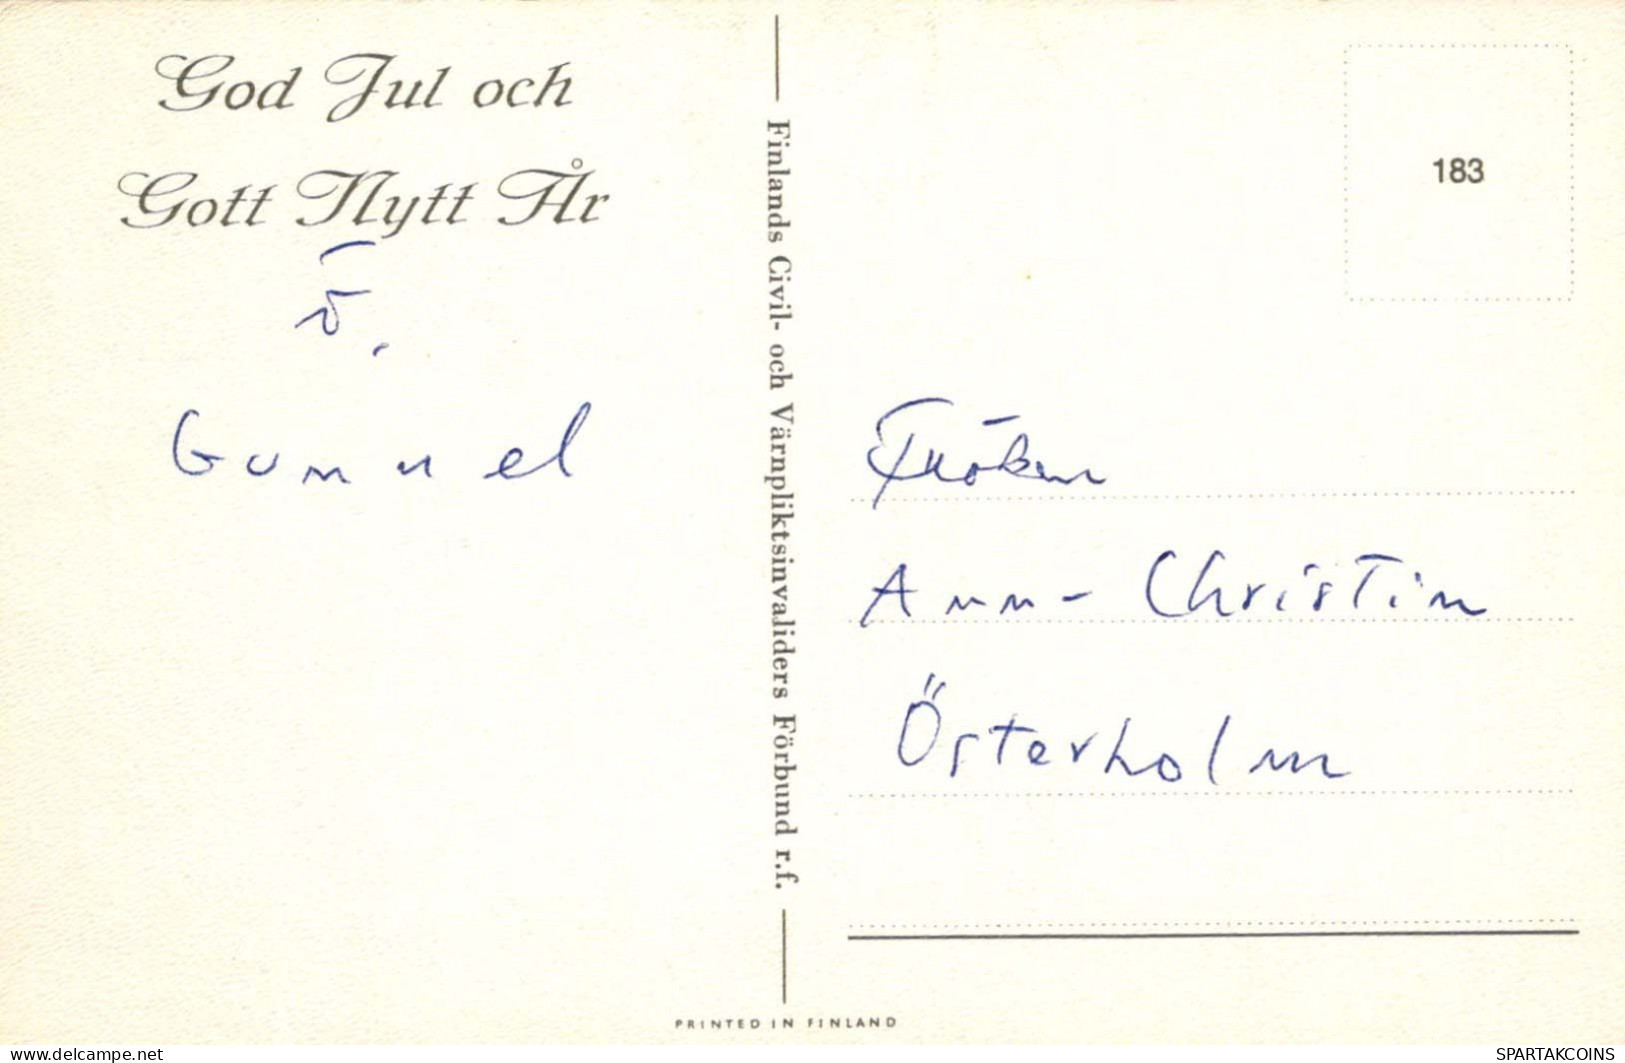 God Jul och
Gott Nytt År
Ö.
Gunnel
Finlands Civil- och Värnpliktsinvaliders Förbund r.f.
183
Fröken
Ann-Christin
Österholm
PRINTED IN FINLAND
www.delcampe.net
SPARTAKCOINS